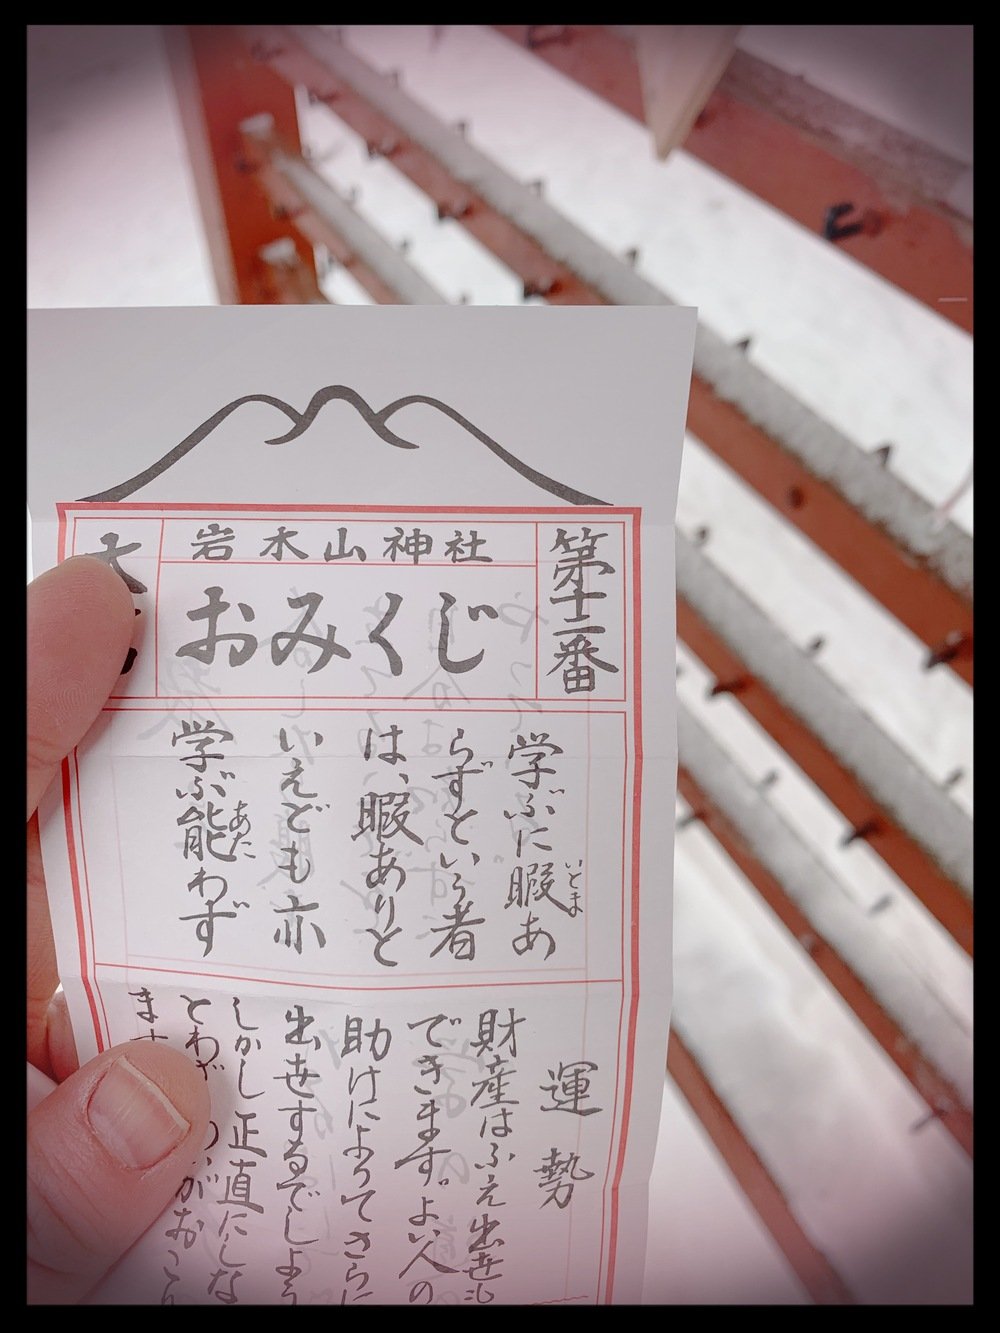 第十二番
岩木山神社
おみくじ
大
学ぶに暇あ
いとま
らずという者
は、暇ありと
いえども亦
学ぶ能わず
あた
運勢
財産はふえ出世も
できます。よい人の
助けによってさらに
出世するでしょう
しかし正直にしな
とわざ いがおこり
ま